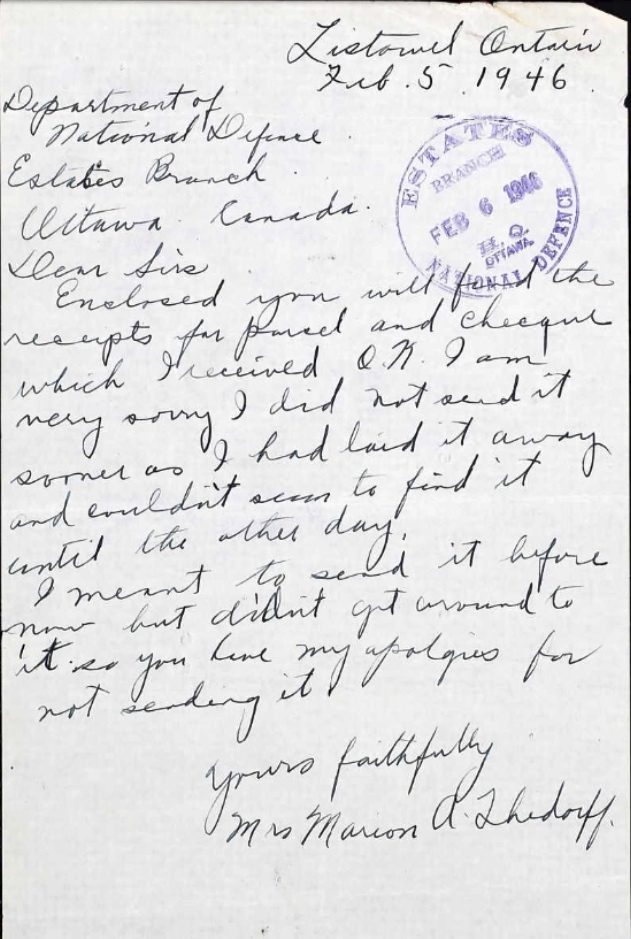 Listowel Ontario
Feb. 5 1946.
Department of
National Defence.
Estates Branch.
Ottawa. Canada.
ESTATES
BRANCH
FEB 6 1946
H. Q.
OTTAWA
NATIONAL DEFENCE
Dear Sirs
Enclosed you will find the
receipts for parsel and checque
which I received O.K. I am
very sorry I did not send it
sooner as I had laid it away
and couldn't seem to find it
until the other day.
I meant to send it before
now but didn't get around to
it so you have my apolgies for
not sending it
Yours faithfully
Mrs Marion A. Thedorff.